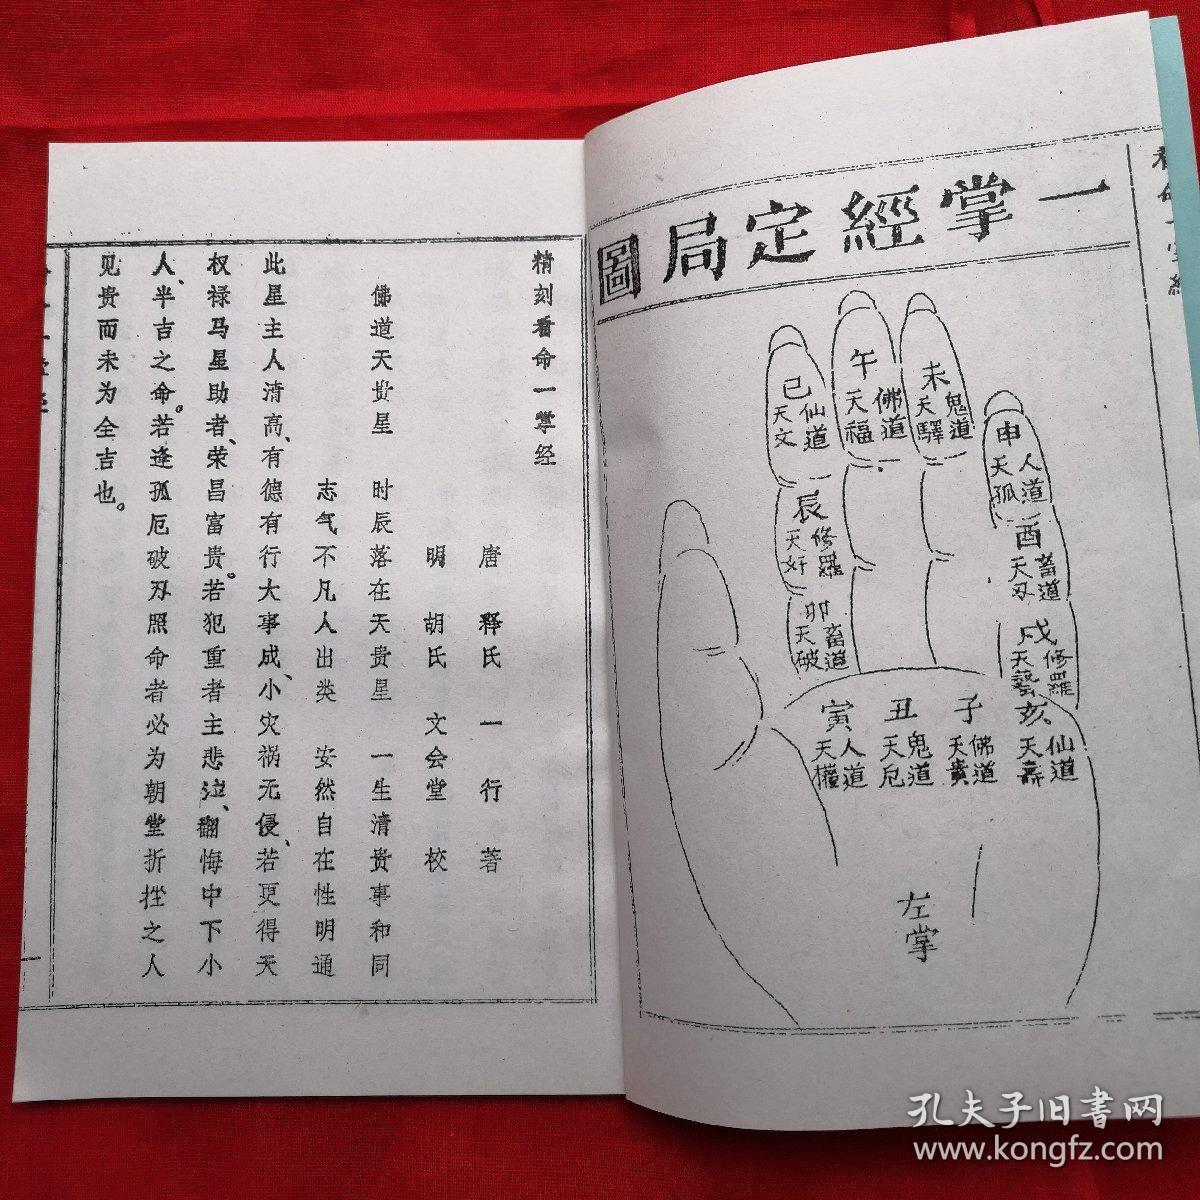 看命一掌經
一掌經定局圖
巳
仙道
天文
午
佛道
天福
未
鬼道
天驛
申
人道
天孤
辰
修羅
天奸
酉
畜道
天刃
卯
畜道
天破
戌
修羅
天藝
寅
人道
天權
丑
鬼道
天厄
子
佛道
天貴
亥
仙道
天壽
左掌
精刻看命一掌经
唐 释氏 一行 著
明 胡氏 文会堂 校
佛道天贵星 时辰落在天贵星 一生清贵事和同
志气不凡人出类 安然自在性明通
此星主人清高、有德有行大事成、小灾祸无侵、若更得天
权禄马星助者、荣昌富贵。若犯重者主悲泣、翻悔中下小
人、半吉之命。若逢孤厄破刃照命者必为朝堂折挫之人
见贵而未为全吉也。
一
孔夫子旧书网
www.kongfz.com